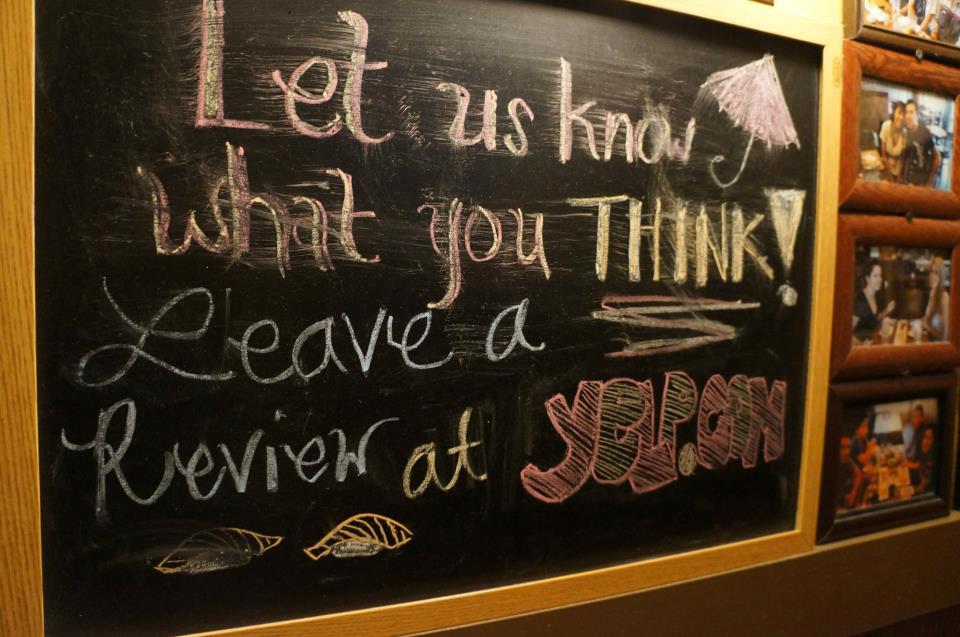 Let us know
what you THINK!
Leave a
Review at YELP.COM